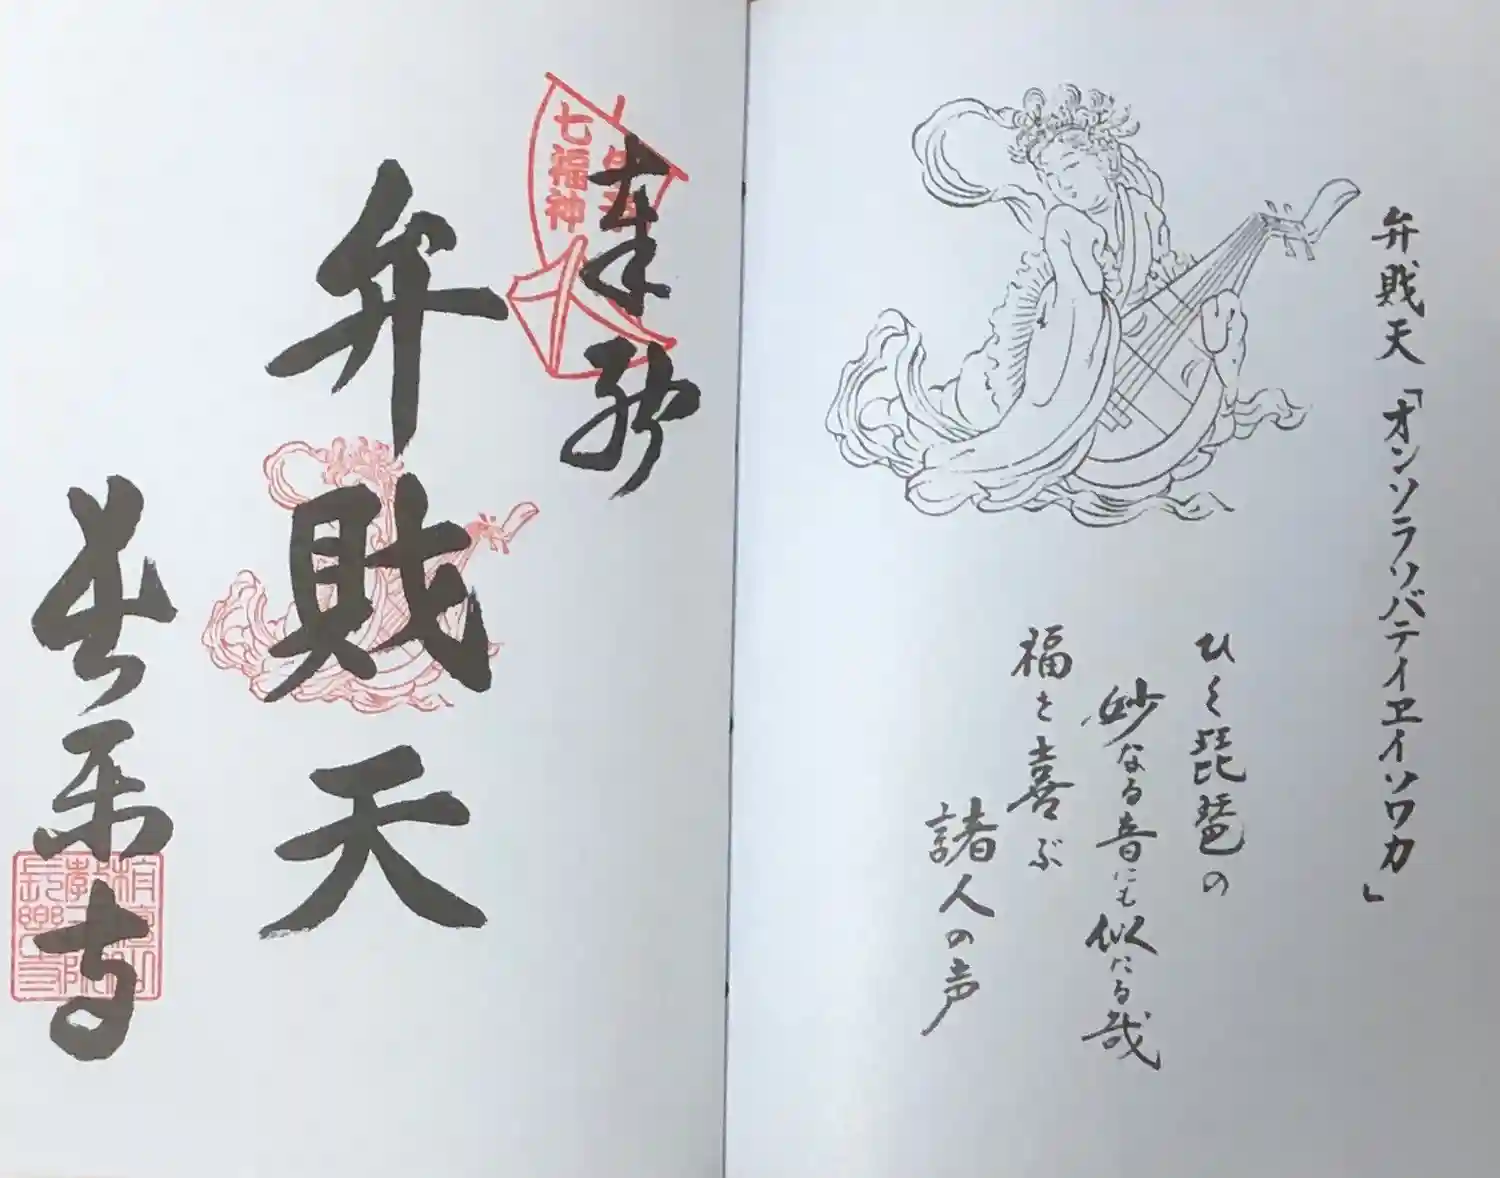 弁財天「オンソラソバテイヱイソワカ」
ひく琵琶の
妙なる音にも似たる哉
福を喜ぶ
諸人の声
奉拝
七福神
弁財天
長楽寺